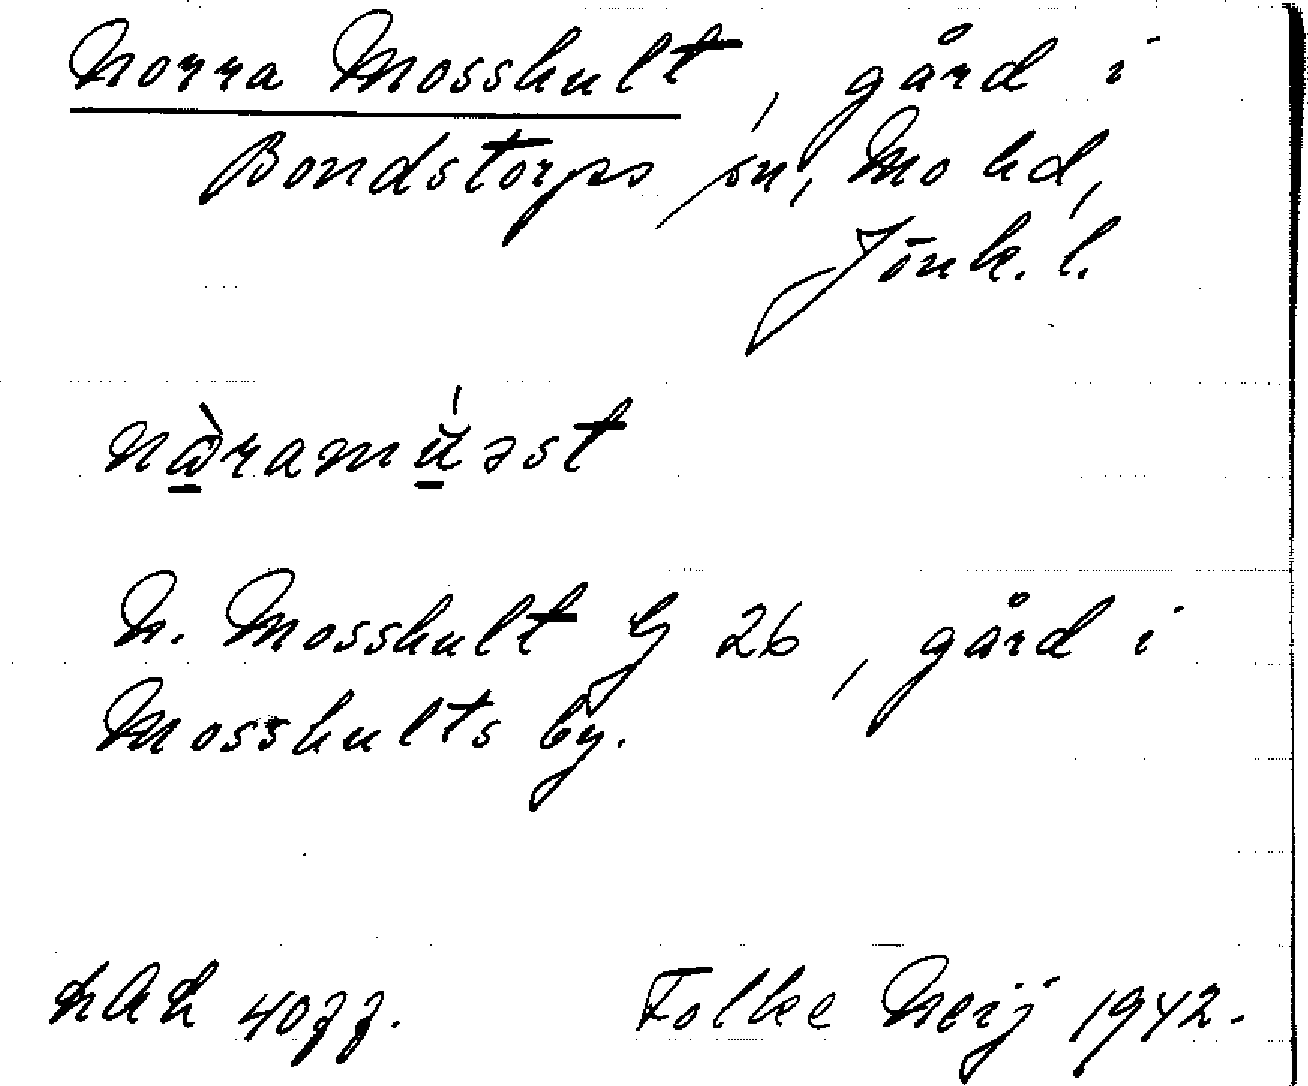 Norra Mosshult, gård i
Bondstorps sn, Mo hd,
Jönk. l.
nàramú̆əst
N. Mosshult G 26, gård i
Mosshults by.
40ff.
Folke Neij 1942.